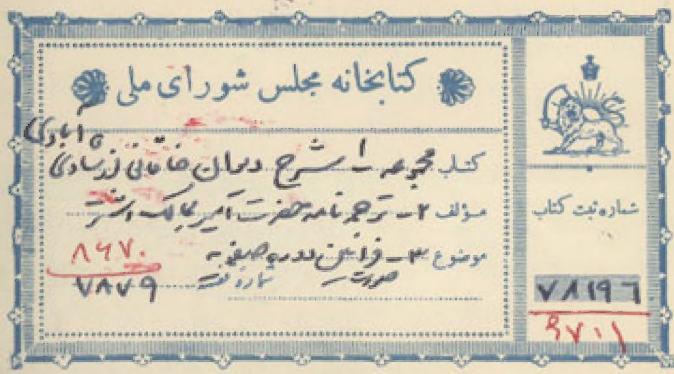 کتابخانه مجلس شورای ملی
کتاب مجموعه ۱- شرح دیوان خاقانی از شادی آبادی
مؤلف ۲- ترجمه نامه حضرت امیر بمالک اشتر
موضوع ۳- فرامین دوره صفویه
شماره قفسه
۸۶۷۰
۷۸۷۹
شماره ثبت کتاب
۷۸۱۹۶
۹۷۰۱